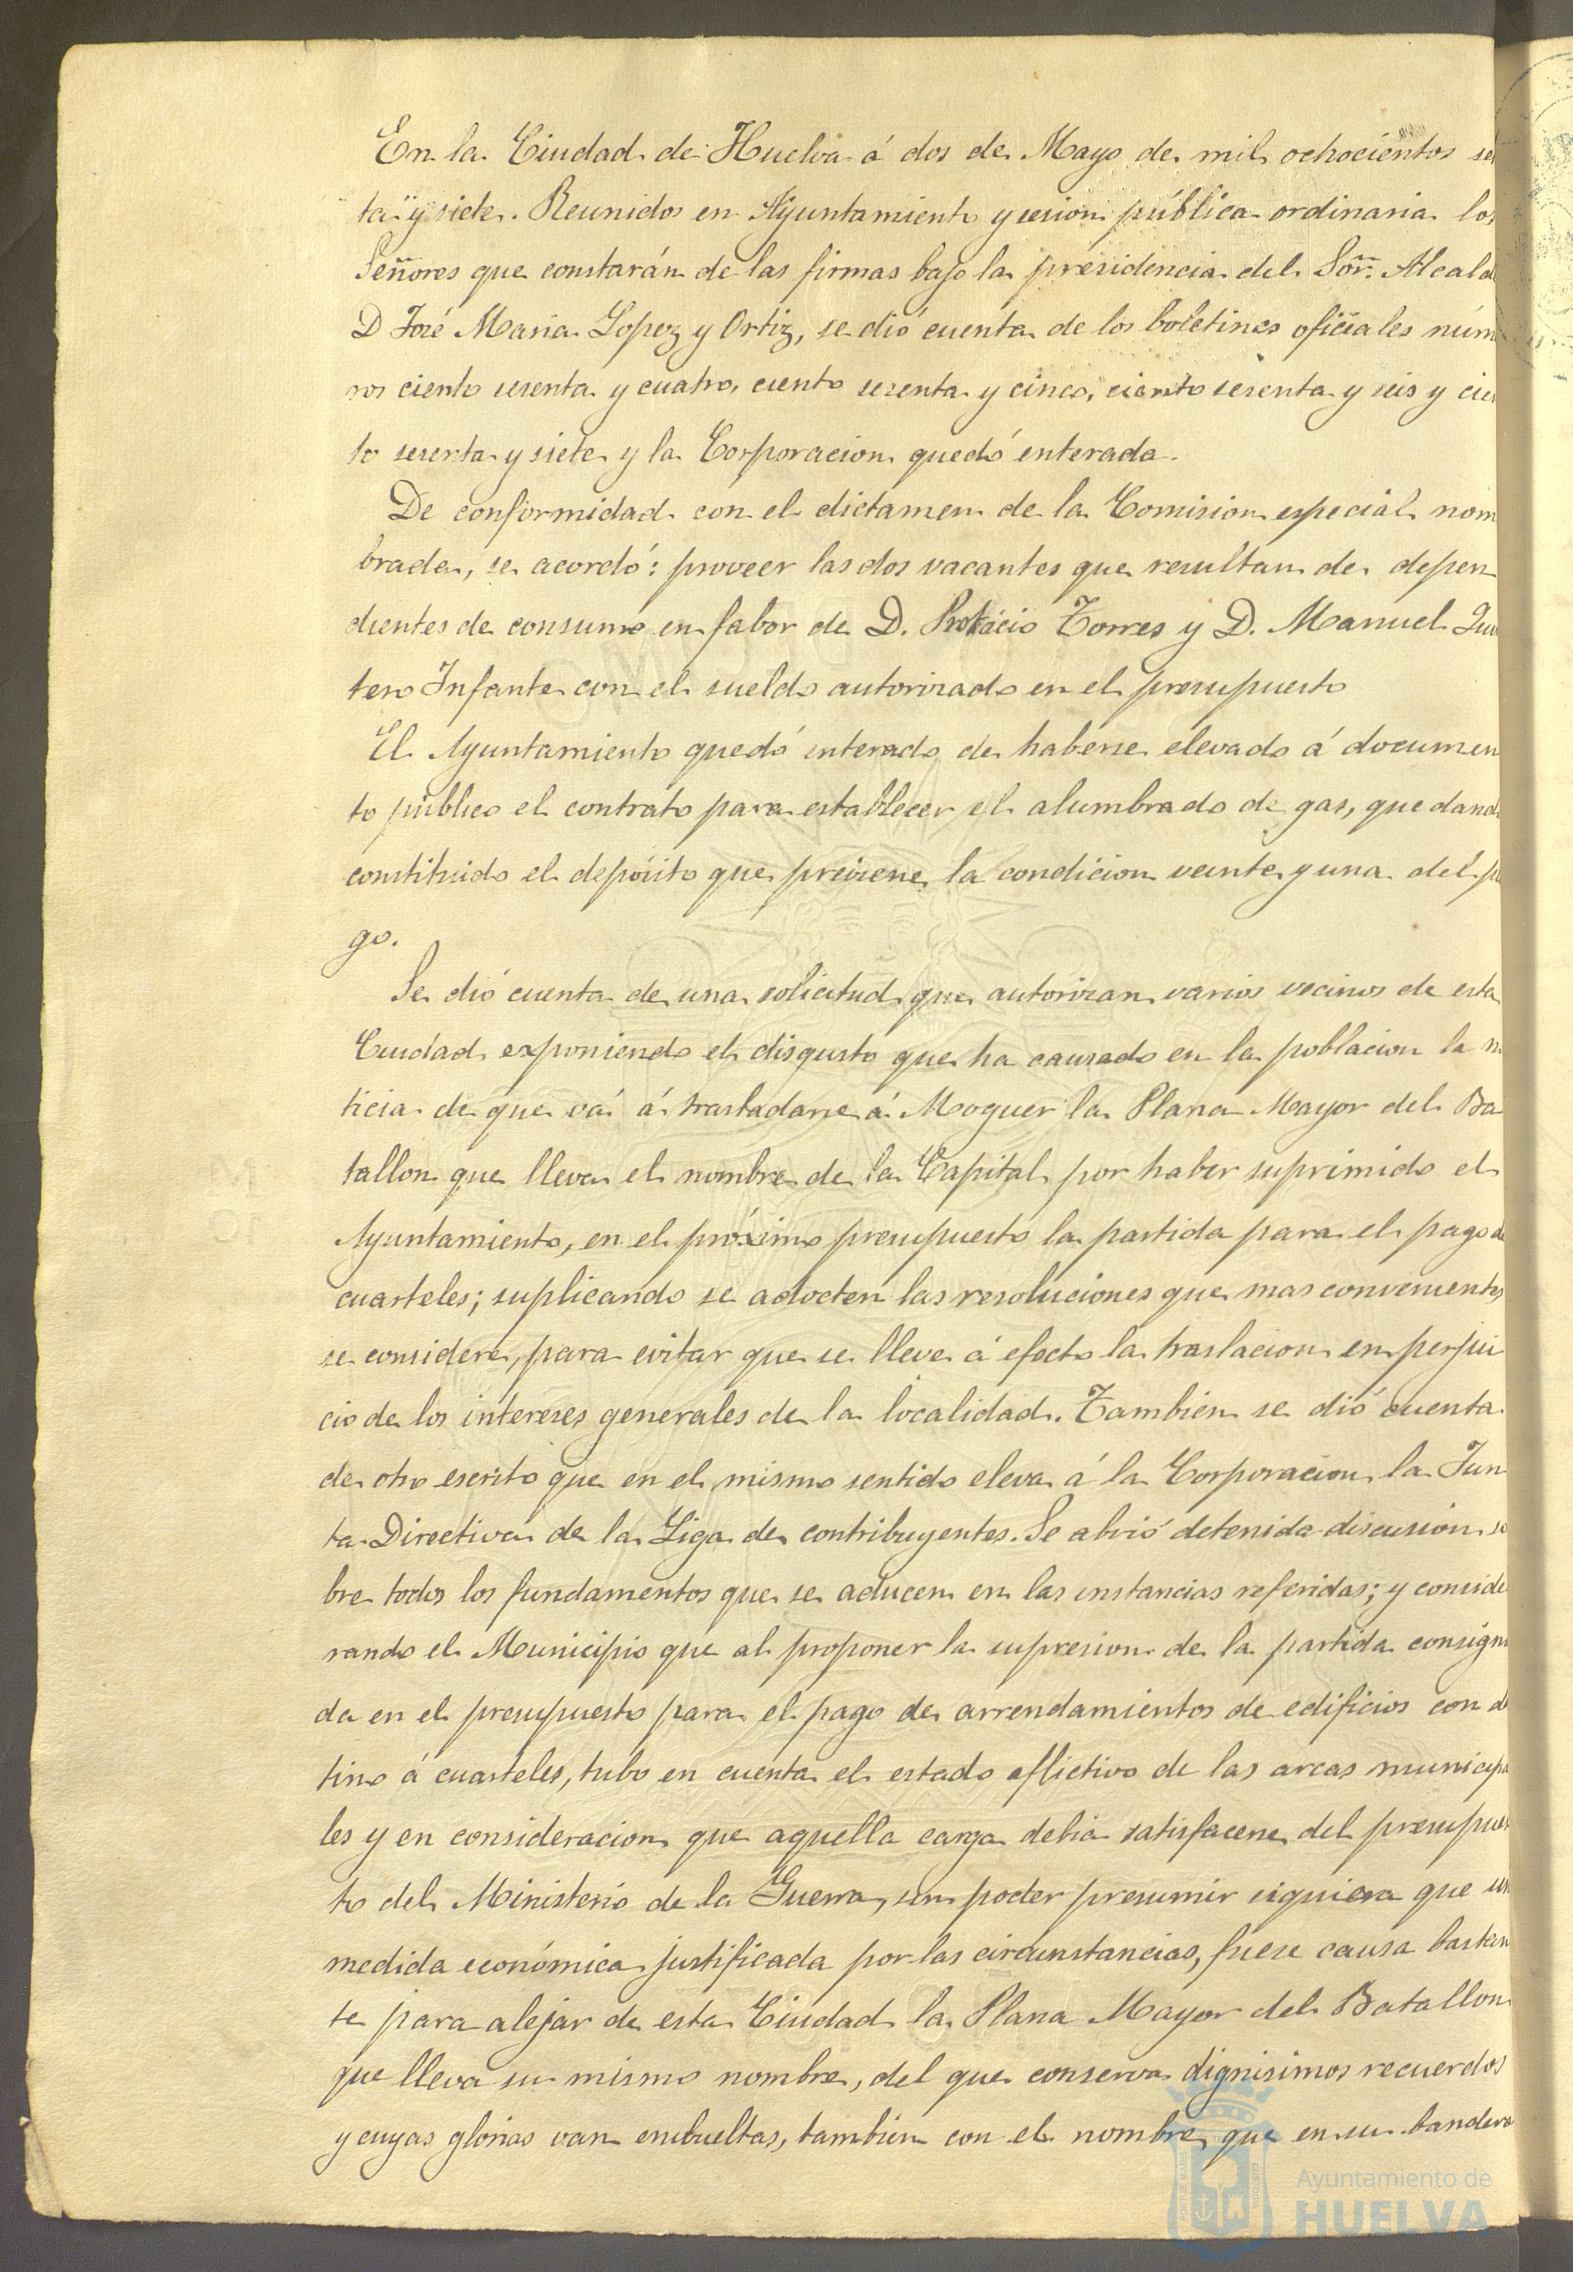 En la Ciudad de Huelva á dos de Mayo de mil ochocientos se
ta y siete. Reunidos en Ayuntamiento y sesion pública ordinaria los
Señores que constarán de las firmas bajo la presidencia del Sor. Alcald
D José Maria Lopez y Ortiz, se dió cuenta de los boletines oficiales núm
ros ciento sesenta y cuatro, ciento sesenta y cinco, ciento sesenta y seis y cien
to sesenta y siete y la Corporacion quedó enterada.
De conformidad con el dictamen de la Comision especial nom
brada, se acordó: proveer las dos vacantes que resultan de depen
dientes de consumo en fabor de D. Protacio Torres y D. Manuel Quin
tero Infante con el sueldo autorizado en el presupuesto
El Ayuntamiento quedó enterado de haberse elevado á documen
to público el contrato para establecer el alumbrado de gas, quedand
constituido el depósito que previene la condicion veinte y una del pli
go.
Se dió cuenta de una solicitud que autorizan varios vecinos de esta
Ciudad exponiendo el disgusto que ha causado en la poblacion la no
ticia de que vá á trasladarse á Moguer la Plana Mayor del Ba
tallon que lleva el nombre de la Capital por haber suprimido el
Ayuntamiento, en el próximo presupuesto la partida para el pago de
cuarteles; suplicando se adocten las resoluciones que mas convenientes
se considere, para evitar que se lleve á efecto la traslacion en perjui
cio de los intereses generales de la localidad. Tambien se dió cuenta
de otro escrito que en el mismo sentido eleva á la Corporacion la Jun
ta Directiva de la Liga de contribuyentes. Se abrió detenida discusion so
bre todos los fundamentos que se aducen en las instancias referidas; y conside
rando el Municipio que al proponer la supresion de la partida consigna
da en el presupuesto para el pago de arrendamientos de edificios con des
tino á cuarteles, tubo en cuenta el estado aflictivo de las arcas municipa
les y en consideracion que aquella carga debia satisfacerse del presupues
to del Ministerio de la Guerra, sin poder presumir siquiera que un
medida económica justificada por las circunstancias, fuese causa bastan
te para alejar de esta Ciudad la Plana Mayor del Batallon
que lleva su mismo nombre, del que conserva dignisimos recuerdos
y cuyas glorias van embueltas, tambien con el nombre que en su bandera
Ayuntamiento de
HUELVA